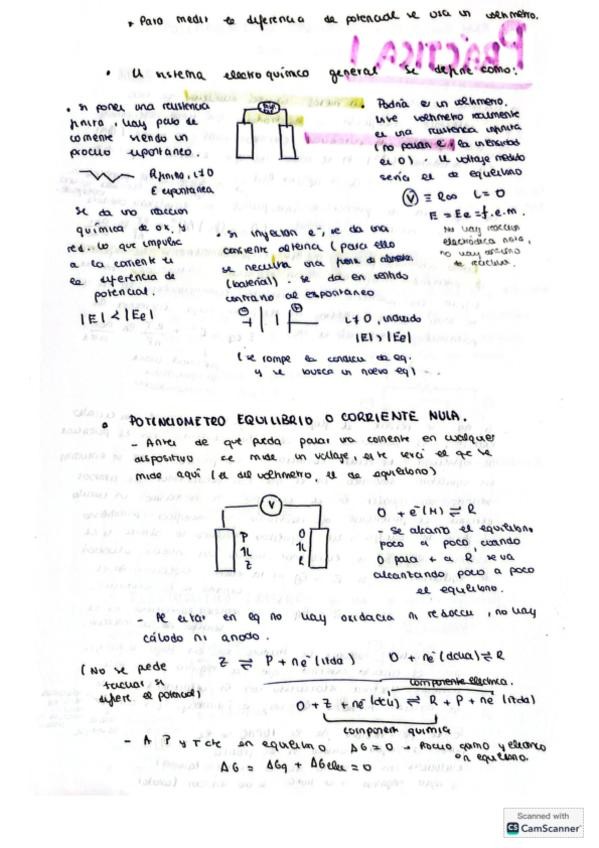 * Para medir la diferencia de potencial se usa un voltímetro.
PRÁCTICA 1
• Un sistema electroquímico general se define como:
• Si pones una resistencia
finita, hay paso de
corriente siendo un
proceso espontáneo.
R finita, i≠0
E espontánea
Se da una reacción
química de ox. y
red. lo que impulsa
a la corriente es
la diferencia de
potencial.
|E| < |Ee|
• Podría ser un voltímetro.
Este voltímetro realmente
es una resistencia infinita
(no pasan e⁻ y la intensidad
es 0). El voltaje medido
sería el de equilibrio
V ≡ R∞ i=0
E = Ee = f.e.m.
No hay reacción
electródica neta,
no hay
de reactivo.
• Si inyectan e⁻, se da una
corriente externa (para ello
se necesita una fuente de
(batería). Se da en sentido
contrario al espontáneo
i≠0, inducido
|E| > |Ee|
(se rompe la condición de eq.
y se busca un nuevo eq) -..
• POTENCIOMETRO EQUILIBRIO O CORRIENTE NULA.
- Antes de que pueda pasar una corriente en cualquier
dispositivo se mide un voltaje, este será el que se
mide aquí (el del voltímetro, el de equilibrio)
V
P
1L
Z
O
1L
R
O + e⁻(M) ⇌ R
- Se alcanza el equilibrio
poco a poco, cuando
O pasa + a R se va
alcanzando poco a poco
el equilibrio.
- Al estar en eq no hay oxidación ni reducción, no hay
cátodo ni ánodo.
(No se puede
tachar si
difiere el potencial)
Z ⇌ P + ne⁻(itda) O + ne⁻(dcha) ⇌ R
componente eléctrica.
O + Z + ne⁻(dch) ⇌ R + P + ne⁻(itda)
component química
- A P y T cte en equilibrio ΔG = 0 → Proceso químico y eléctrico
en equilibrio.
ΔG = ΔGq + ΔGelec = 0
Scanned with
CS CamScanner